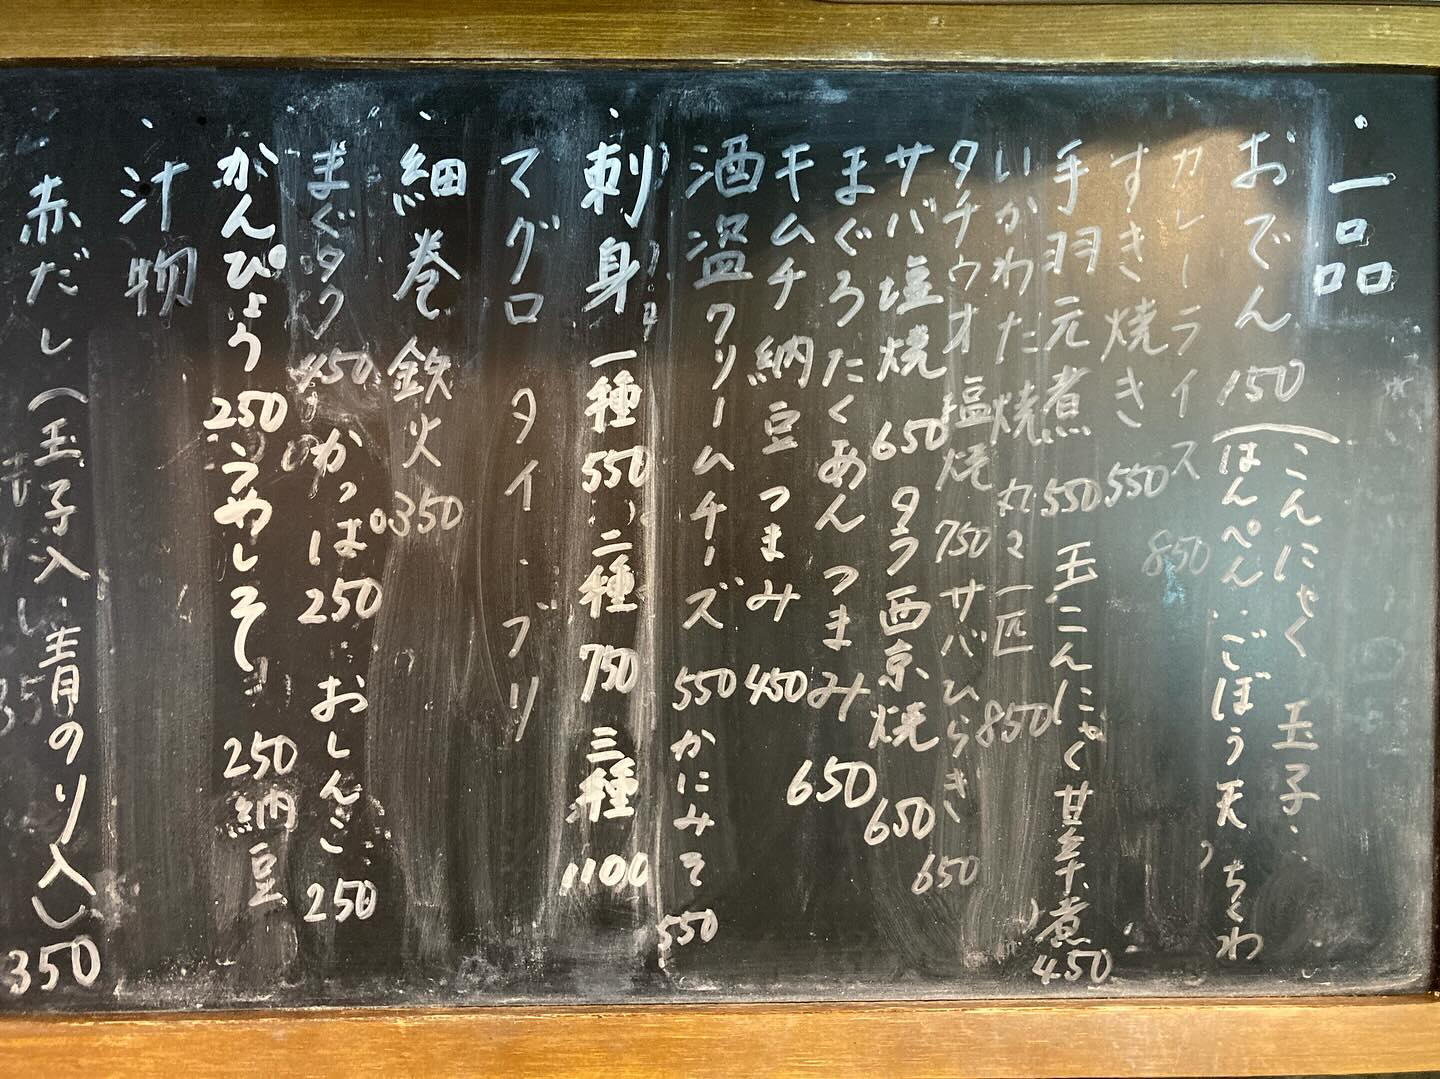 一品
おでん 150 (こんにゃく 玉子・
はんぺん・ごぼう天、ちくわ
カレーライス 850
すきき焼き 550
手羽元煮 550 玉こんにゃく甘辛煮 450
いかわた焼 丸2一匹 850
タチウオ塩焼 750 サバひらき 650
サバ塩焼 650 タラ西京焼 650
まぐろたくあんつまみ 650
キムチ納豆つまみ 450
酒盗クリームチーズ 550 かにみそ 550
刺身 一種 550 二種 750 三種 1100
マグロ タイ・ブリ
細巻 鉄火 350
まぐタク 450 かっぱ 250 おしんこ 250
かんぴょう 250 うめしそ 250 納豆
汁物
赤だし(玉子入り・青のり入り) 350